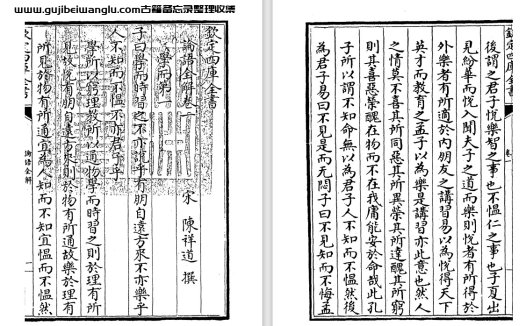 www.gujibeiwanglu.com古籍备忘录整理收集
欽定四庫全書
論語全解卷一
宋 陳祥道 撰
學而第一
子曰學而時習之不亦說乎有朋自遠方來不亦樂乎
人不知而不愠不亦君子乎
學所以窮理教所以通物學而時習之則於理有所
見故悅有朋自遠方來則於物有所通故樂於理有
所見於物有所通宜為人知而不知宜愠而不愠然
欽定四庫全書
論語全解
欽定四庫全書
卷一
後謂之君子悅樂智之事也不愠仁之事也子夏出
見紛華而悅入聞夫子之道而樂則悅者有所得於
外樂者有所適於内朋友之講習易以為悅得天下
英才而教育之孟子以為樂是講習亦此意也然人
之情莫不喜其所同惡其所異榮其所達醜其所窮
則其喜惡榮醜在物而不在我庸能安於命哉此孔
子所以謂不知命無以為君子人不知而不愠然後
為君子易曰不見是而无悶子曰不見知而不悔孟